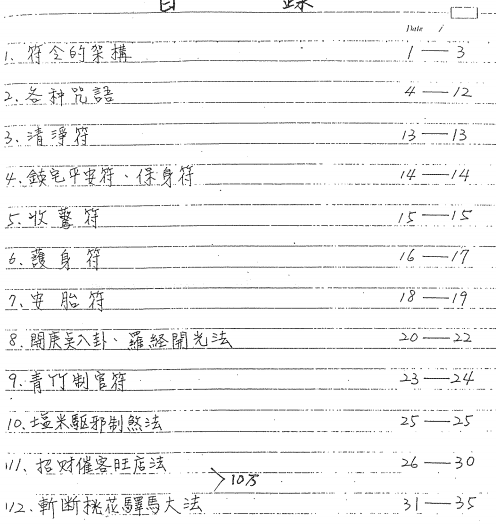 目 錄
Date /
1. 符令的架構 1 — 3
2. 各种咒語 4 — 12
3. 清淨符 13 — 13
4. 鎮宅平安符、保身符 14 — 14
5. 收驚符 15 — 15
6. 護身符 16 — 17
7. 安胎符 18 — 19
8. 開庚吳八卦、羅經開光法 20 — 22
9. 青竹制官符 23 — 24
10. 塩米驅邪制煞法 25 — 25
11. 招財催客旺店法 26 — 30
>10万
12. 斬断桃花驛馬大法 31 — 35